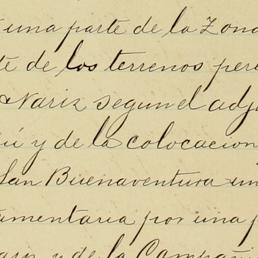 una parte de la Zona
de los terrenos per
Nariz segun el adj
y de la colocacion
San Buenaventura un
amentaria por una
y de la Compañi